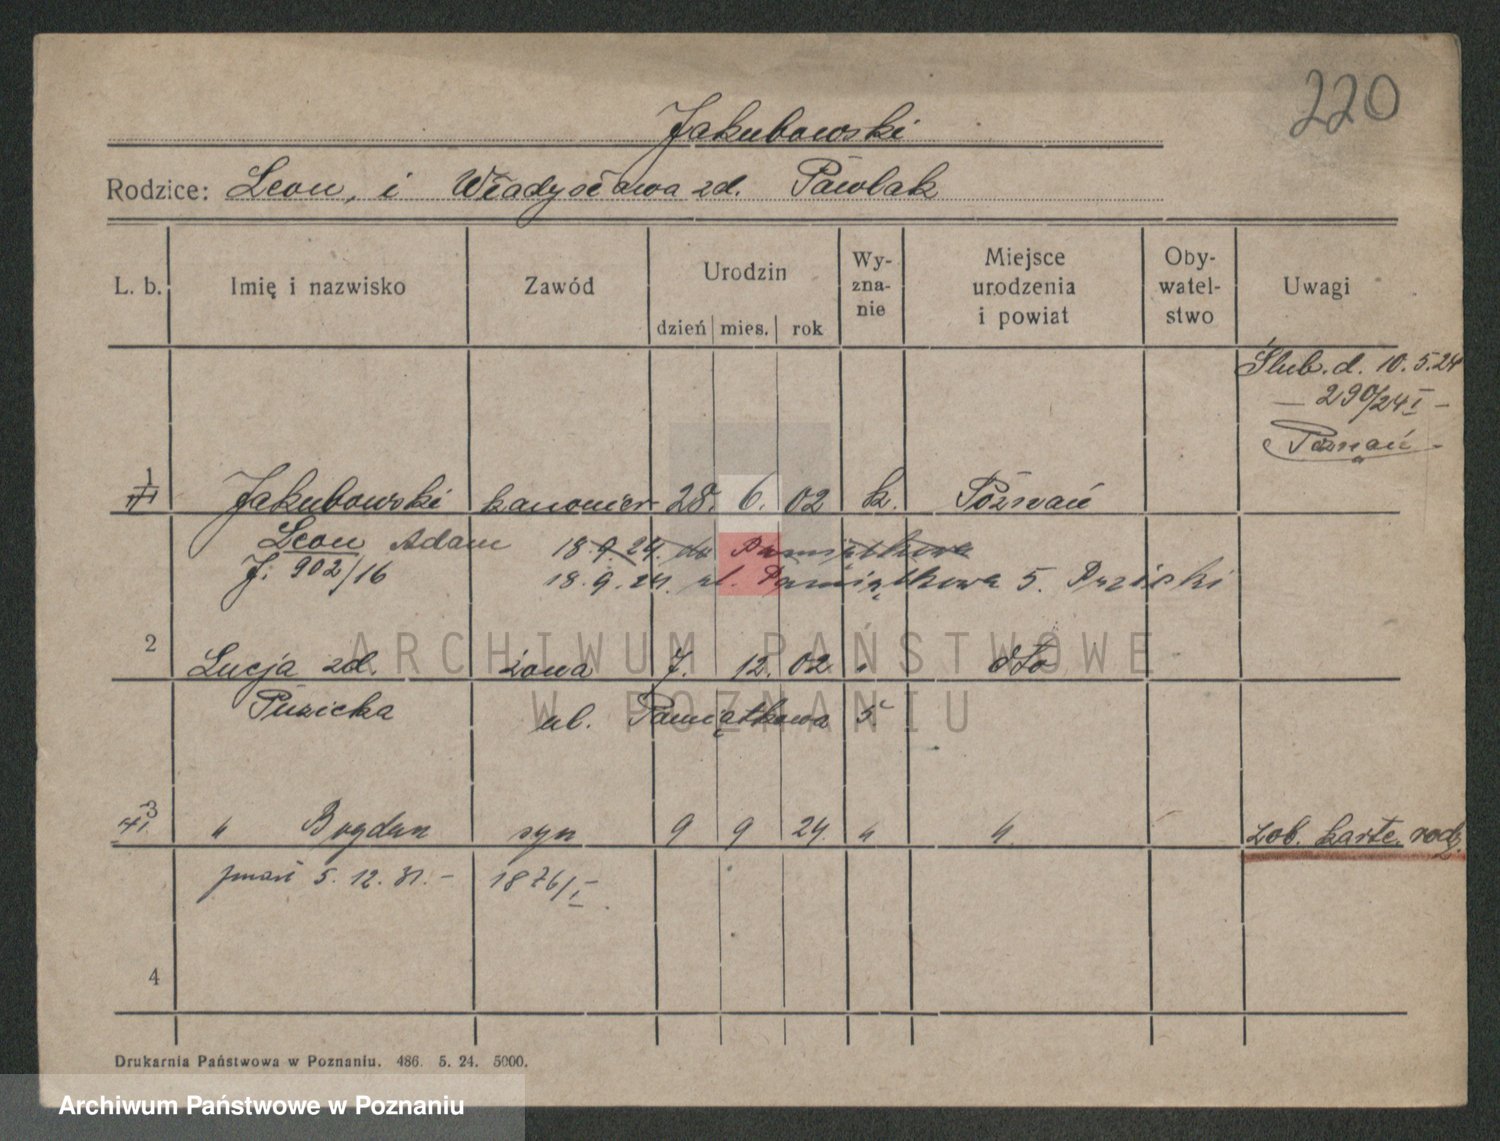 220
Jakubowski
Rodzice: Leon, i Władysława zd. Pawlak
L. b. Imię i nazwisko Zawód Urodzin dzień mies. rok Wy-zna-nie Miejsce urodzenia i powiat Oby-watel-stwo Uwagi
Ślub. d. 10.5.24
— 290/24 I —
Poznań
1 Jakubowski kanonier 28. 6. 02 k. Poznań
Leon Adam 18.9.24. do Pamiątkowa
J. 902/16 18.9.24. ul. Pamiątkowa 5.
2 Lucja zd. żona 7. 12. 02 " dto
Pusicka ul. Pamiątkowa 5
3 " Bogdan syn 9 9 24. " " zob. kartę rodz.
zmarł 5.12.31.– 1876/I
4
Drukarnia Państwowa w Poznaniu. 486. 5. 24. 5000.
ARCHIWUM PAŃSTWOWE
W POZNANIU
Archiwum Państwowe w Poznaniu